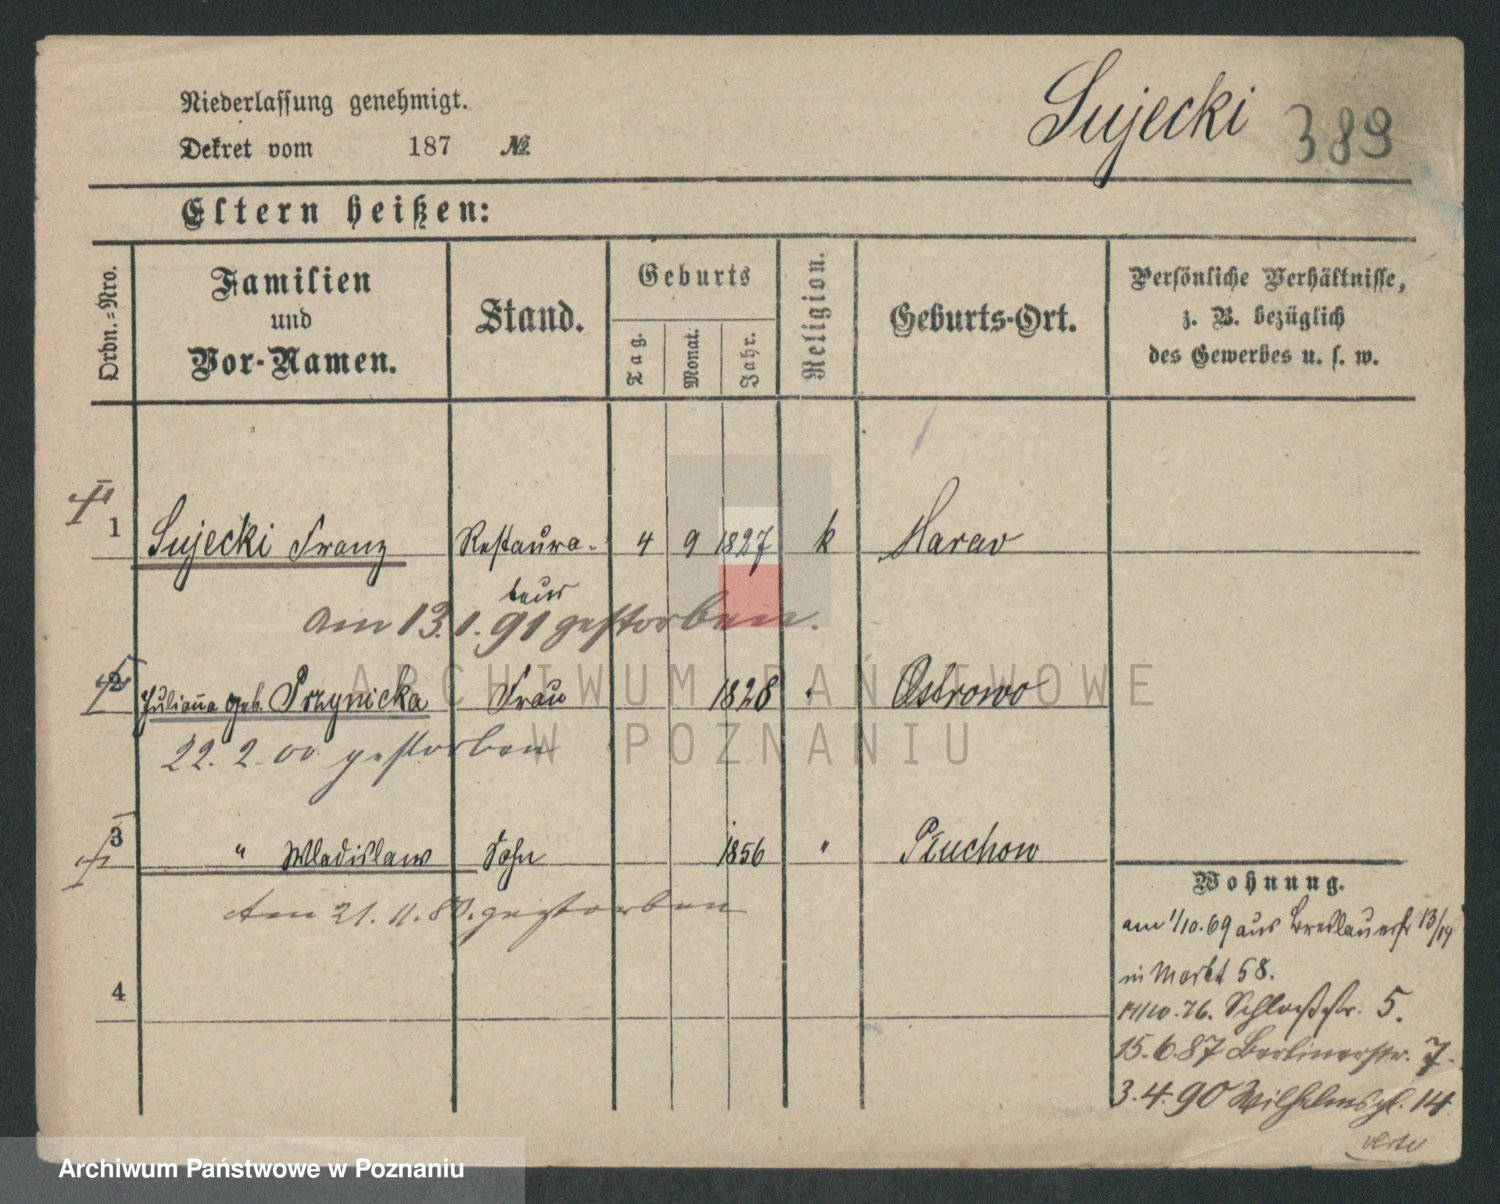 Niederlassung genehmigt.
Dekret vom 187 №
Sujecki 389
Eltern heißen:
Ordn.-Nro.
Familien
und
Vor-Namen.
Stand.
Geburts
Tag.
Monat.
Jahr.
Religion.
Geburts-Ort.
Persönliche Verhältnisse,
z. B. bezüglich
des Gewerbes u. s. w.
1 Sujecki Franz Restaura- 4 9 1827 k
teur
am 13. 1. 91 gestorben.
2 Julianna geb. Przynicka Frau 1828 " Ostrowo
22. 2. 00 gestorben
3 " Wladislaw Sohn 1856 "
Am 21. 11. gestorben
4
Wohnung.
am 1/10. 69 aus Breslauerstr 13/14
in Markt 58.
14/10. 76. Schloßstr. 5.
15. 6. 87 Berlinerstr. 7.
3. 4. 90 Wilhelmspl. 14.
verte
ARCHIWUM PAŃSTWOWE
W POZNANIU
Archiwum Państwowe w Poznaniu